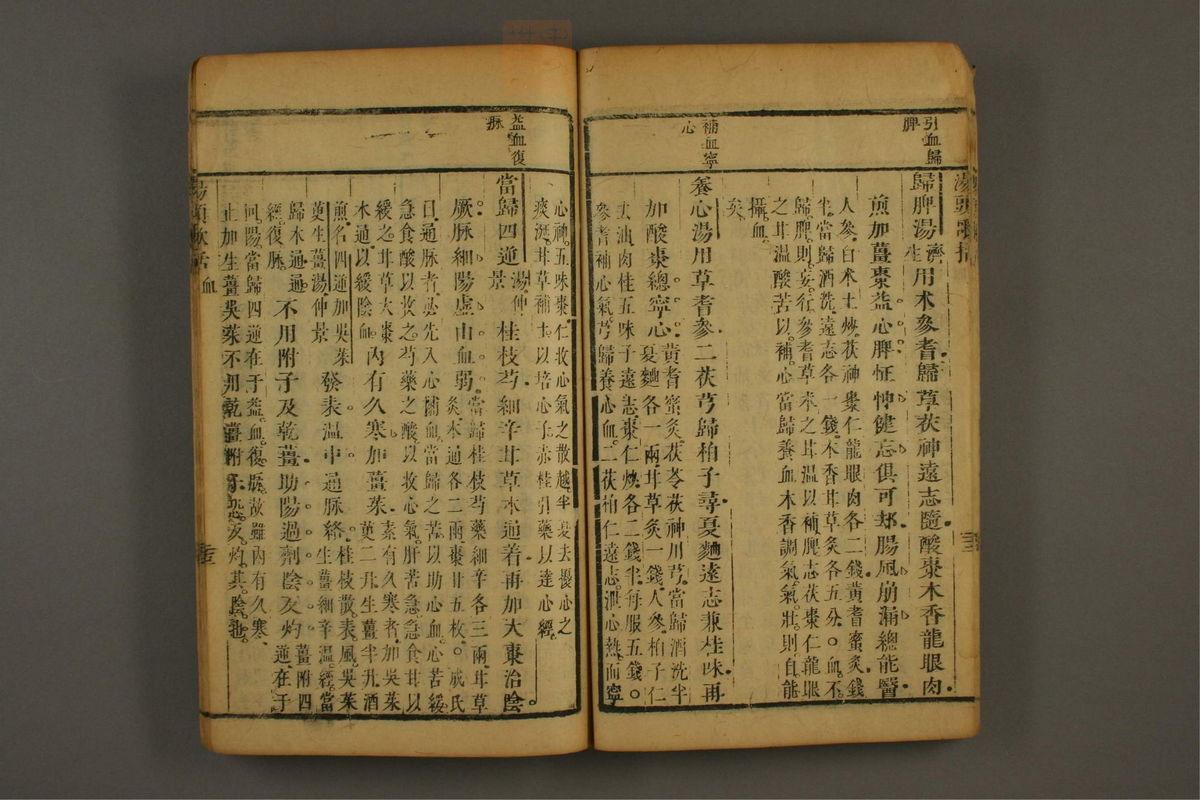 引血歸
脾
湯頭歌括
歸脾湯濟生用朮參耆歸草茯神遠志隨酸棗木香龍眼肉
煎加薑棗益心脾怔忡健忘俱可却腸風崩漏總能醫
人參白朮土炒茯神棗仁龍眼肉各二錢黃耆蜜灸錢
半當歸酒洗遠志各一錢木香甘草灸各五分○血不
歸脾則妄行參耆草朮之甘溫以補脾志茯棗仁龍眼
之甘溫酸苦以補心當歸養血木香調氣氣壯則自能
攝血
矣
補血寧
心
養心湯用草耆參二茯芎歸柏子尋夏麯遠志兼桂味再
加酸棗總寧心
黃耆蜜灸茯苓茯神川芎當歸酒洗半
夏麯各一兩甘草灸一錢人參柏子仁
去油肉桂五味子遠志棗仁炒各二錢半每服五錢○
參耆補心氣芎歸養心血二茯柏仁遠志泄心熱而寧
心神五味棗仁收心氣之散越半夏去擾心之
痰涎甘草補土以培心子赤桂引藥以達心經
益血復
脉
當歸四逆湯仲景桂枝芍細辛甘草木通着再加大棗治陰
厥脉細陽虛由血弱
當歸桂枝芍藥細辛各三兩甘草
灸木通各二兩棗廿五枚○成氏
曰通脉者必先入心補血當歸之苦以助心血心苦緩
急食酸以收之芍藥之酸以收心氣肝苦急急食甘以
緩之甘草大棗
木通以緩陰血
內有久寒加薑茱
素有久寒者加吳茱
萸二升生薑半升酒
煎名四逆加吳茱
萸生薑湯仲景
發表溫中通脉絡
桂枝散表風吳茱
生薑細辛溫經當
歸木通通
經復脉
不用附子及乾薑助陽過劑陰反灼
薑附四
逆在于
回陽當歸四逆在于益血復脉故雖內有久寒
止加生薑吳茱不用乾薑附子恐反灼其陰也
湯頭歌括
血